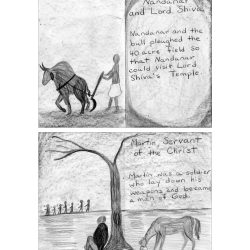 Nandanar
and Lord Shiva
Nandanar and the
bull ploughed the
40 acre field so
that Nandanar
could visit Lord
Shiva's Temple
Martin, Servant
of the Christ
Martin was a soldier
who lay down his
weapons and became
a man of God.